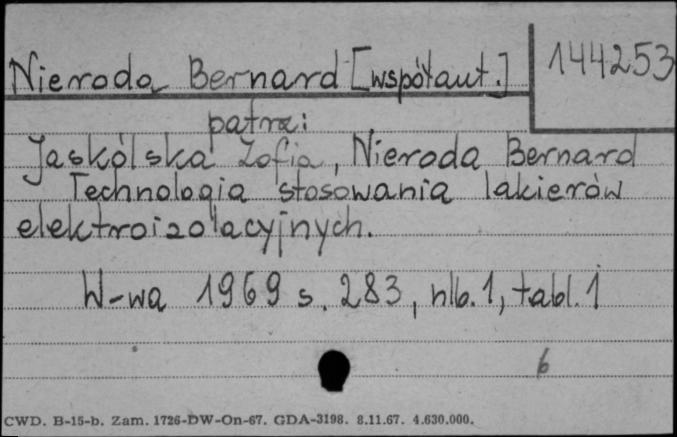 Nieroda Bernard [współaut.] 144253
patrz:
Jaskólska Zofia, Nieroda Bernard
Technologia stosowania lakierów
elektroizolacyjnych.
W-wa 1969 s. 283, nlb. 1, tabl. 1
6
CWD. B-15-b. Zam. 1726-DW-On-67. GDA-3198. 8.11.67. 4.630.000.